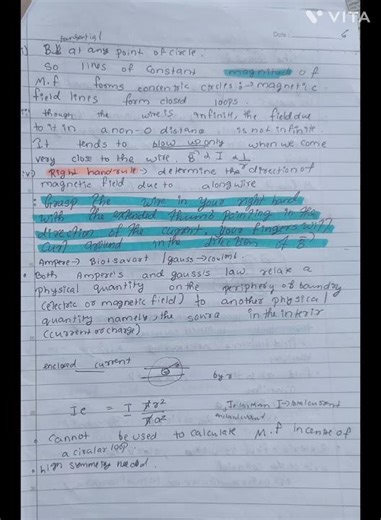 VITA
tangential
Date:
6
B at any point of circle.
So lines of constant magnitude of
M.f forms concentric circles :→ magnetic
field lines form closed loops.
though the wire is infinite, the field due
to it in a non-0 distance is not infinite.
It tends to blow up only when we come
very close to the wire. B ∝ I ∝ 1/r
iv) Right hand rule → determine the direction of
magnetic field due to a long wire
: Grasp the wire in your right hand
with the extended thumb pointing in the
direction of the current. Your fingers will
curl around in the direction of B
Ampere → Biot savart / gauss → coulmb.
• Both Ampere's and gauss's law relax a
physical quantity on the periphery or boundry
(electric or magnetic field) to another physical
quantity namely, the sourse in the interir
(current or charge)
enclosed current
by r
Ie = I πr²
πa²
I → total current
• Cannot be used to calculate M.f in case of
a cirular loop.
• high symmetry needed